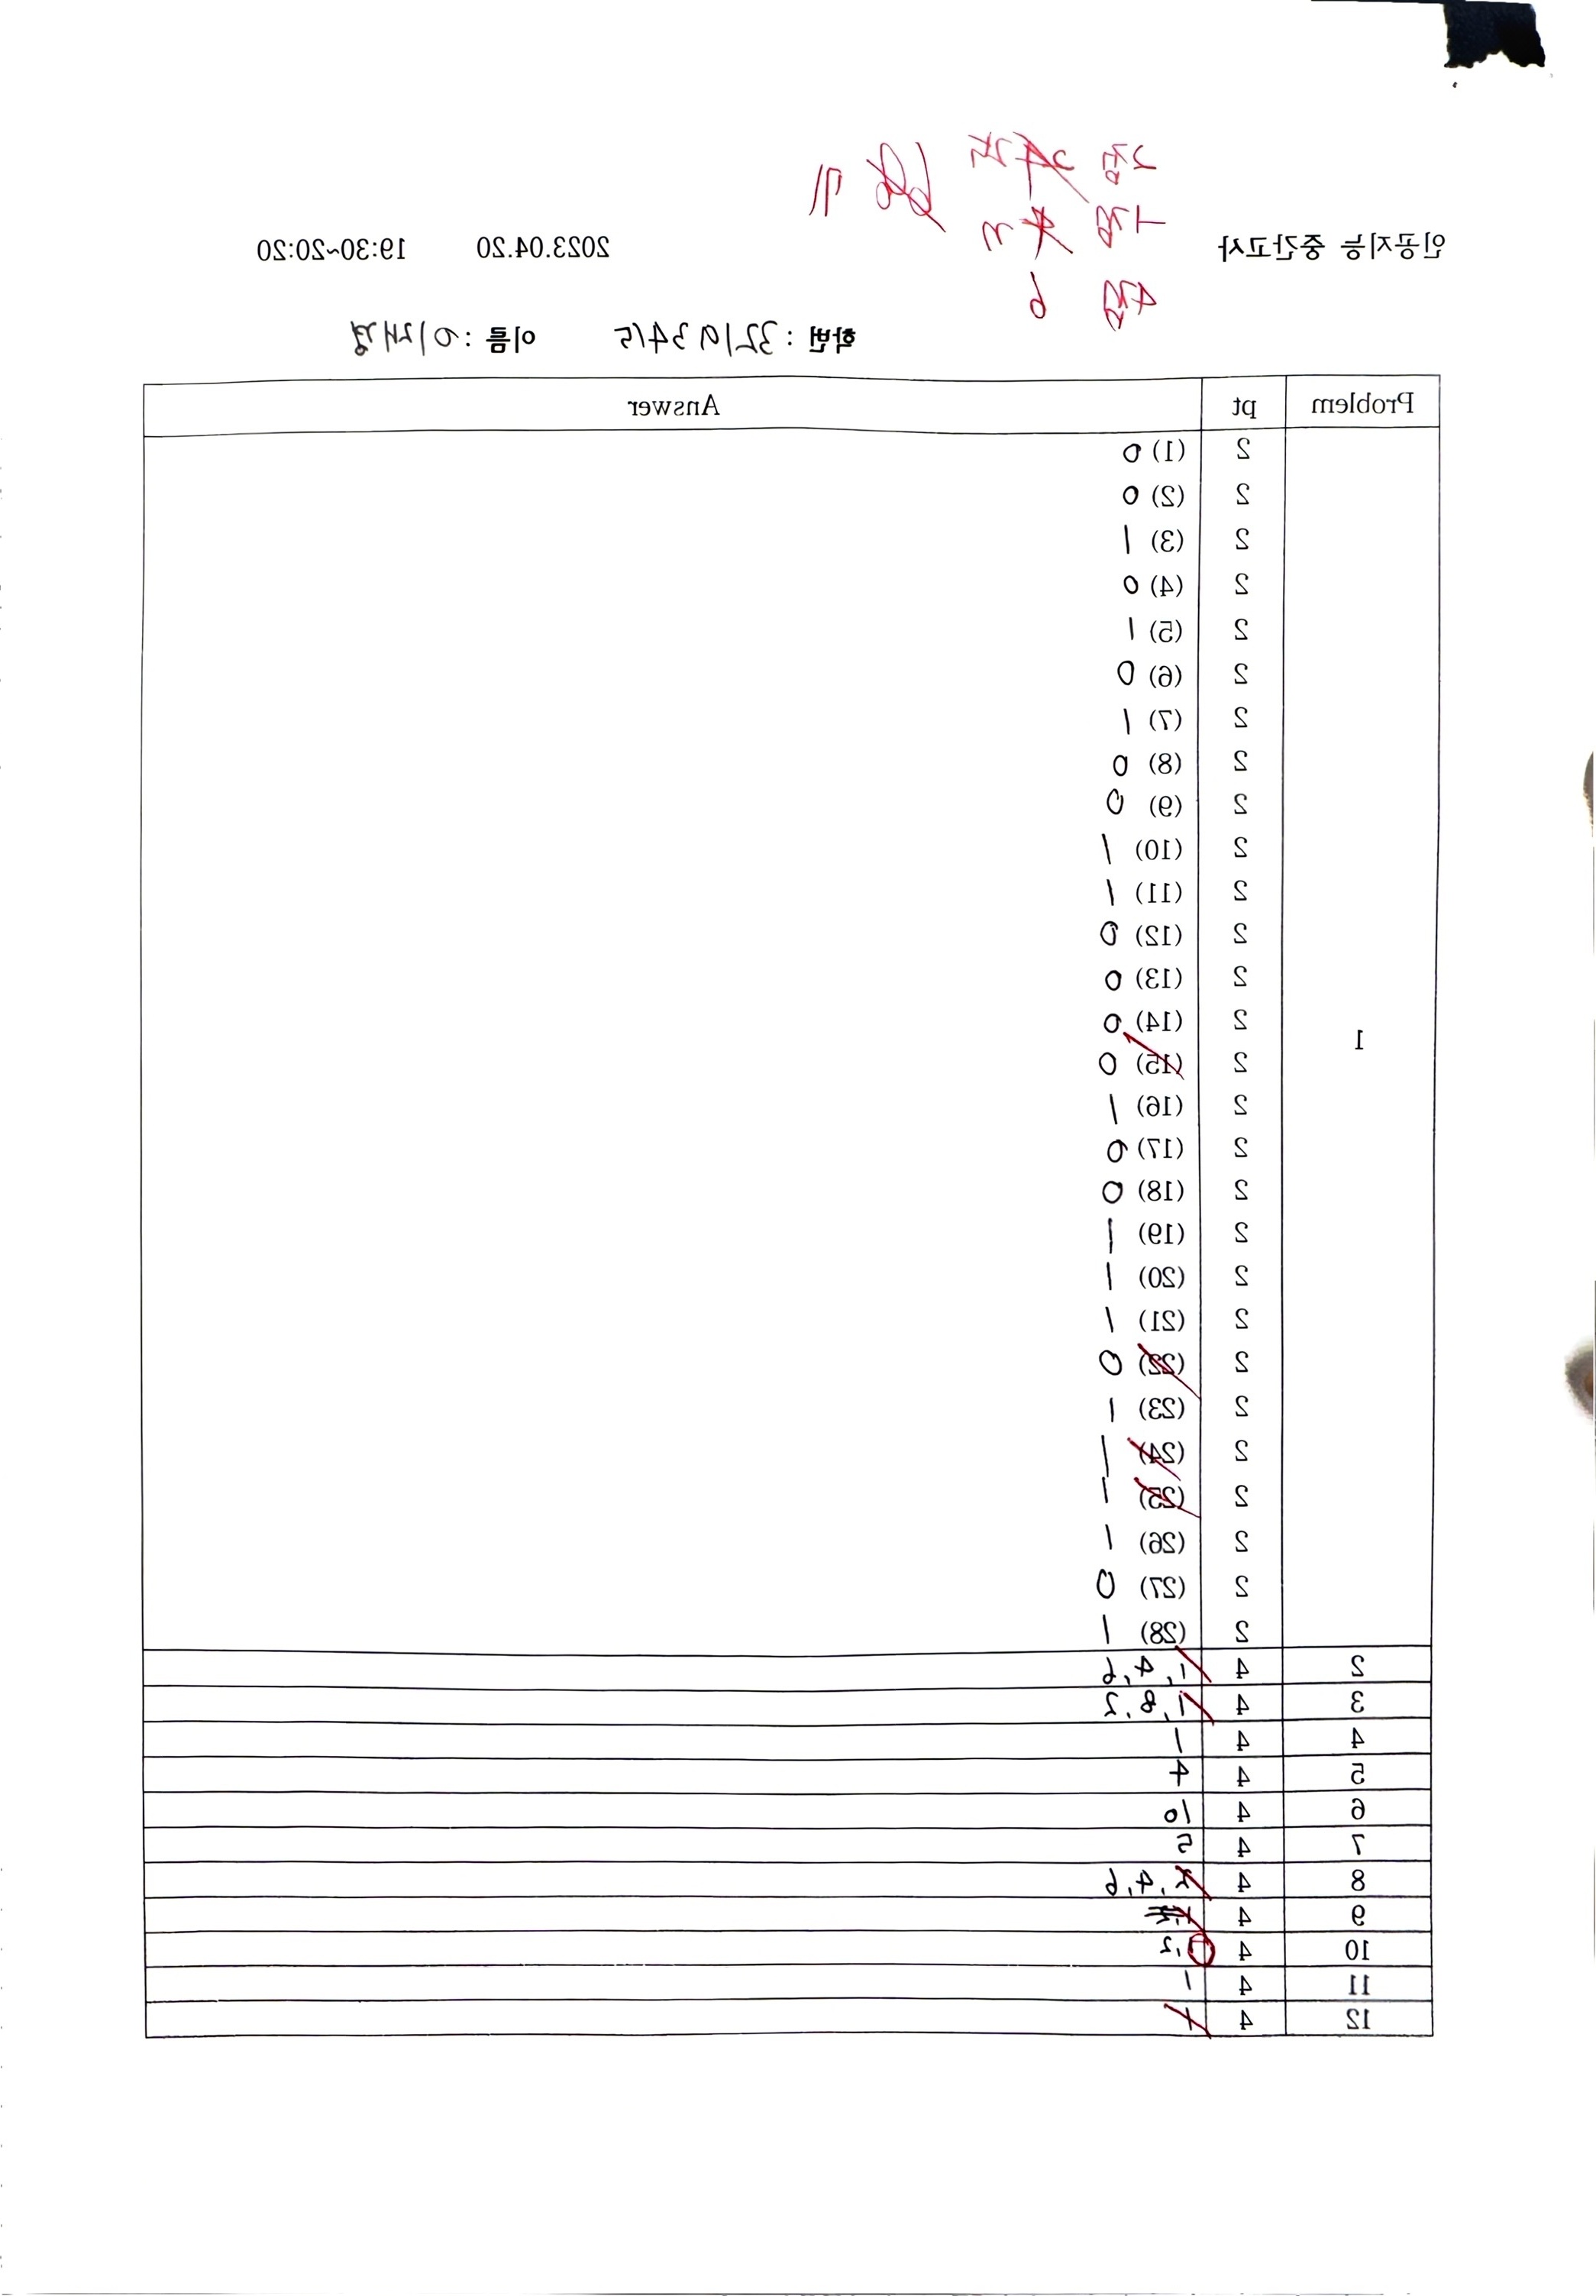 2점
1점
4점 6
71
인공지능 중간고사 2023.04.20 19:30~20:20
학번 : 32193415 이름 : 이재경
Problem pt Answer
1
2 (1) 0
2 (2) 0
2 (3) 1
2 (4) 0
2 (5) 1
2 (6) 0
2 (7) 1
2 (8) 0
2 (9) 0
2 (10) 1
2 (11) 1
2 (12) 0
2 (13) 0
2 (14) 0
2 (15) 0
2 (16) 1
2 (17) 0
2 (18) 0
2 (19) 1
2 (20) 1
2 (21) 1
2 (22) 0
2 (23) 1
2 (24) 1
2 (25) 1
2 (26) 1
2 (27) 0
2 (28) 1
2 4 1, 4, 6
3 4 1, 8, 2
4 4 1
5 4 4
6 4 10
7 4 5
8 4 2, 4, 6
9 4
10 4 1, 2
11 4 1
12 4